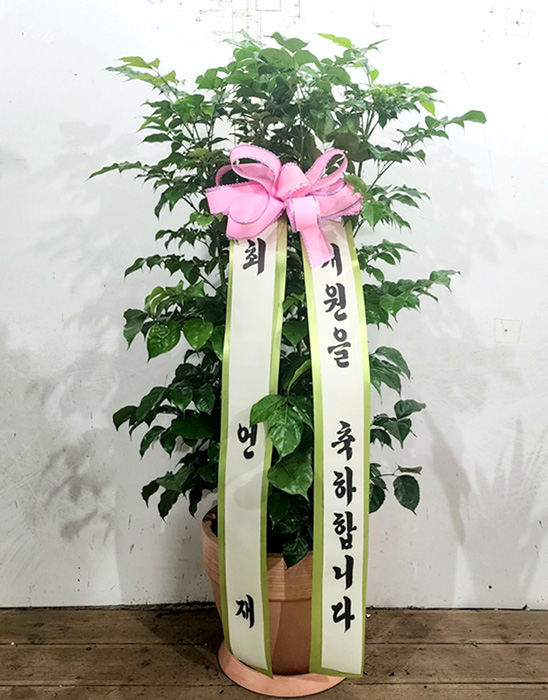 개원을 축하합니다
최 언 재